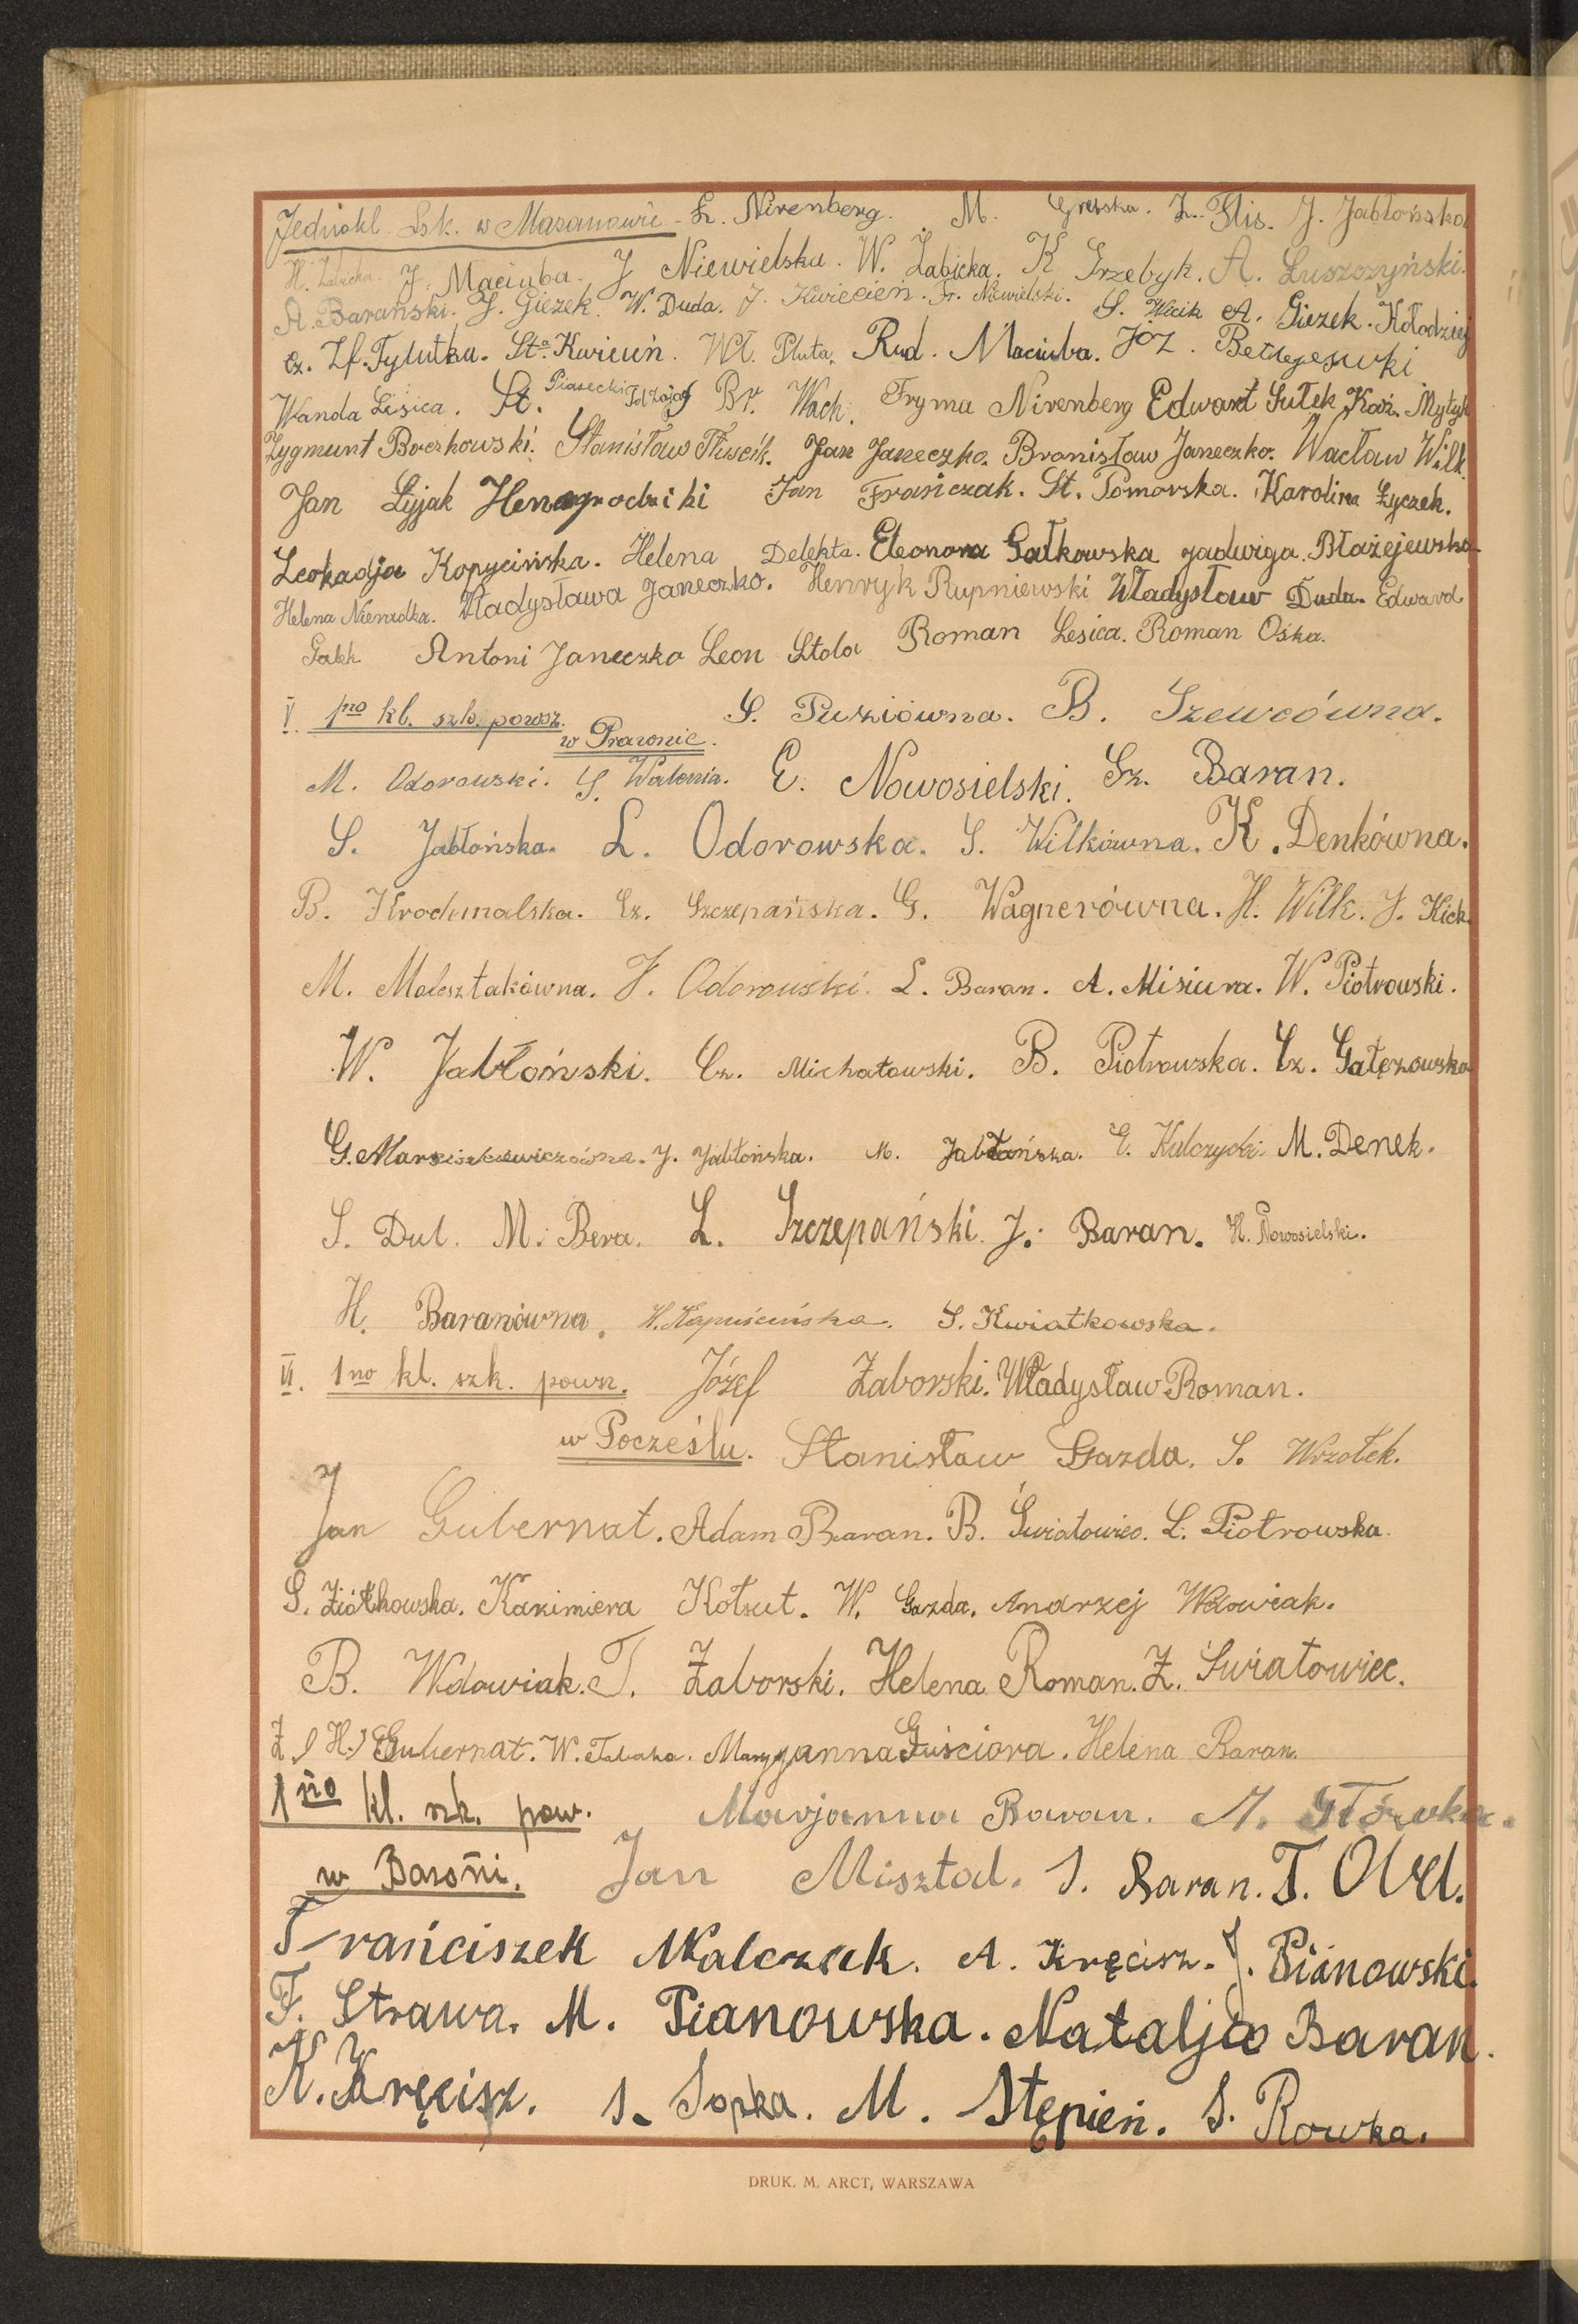 Jednokl. Szk. w Mazanowie - Ch. Nirenberg. M. Greszka. Z. Flis. J. Jabłońska
H. Żabicka. J. Maciuba. J Niewielska. W. Żabicka. K Grzebyk. A. Łuszczyński.
A. Barański. J. Giezek. W. Duda. J. Kwiecień. Fr. Niewielski. S. Wicik A. Giezek. Kołodziej
Cz. Zf. Tylutka. St. Kwicuń. Wł. Pluta. Rud. Maciuba. Józ.
Wanda Lisica. St. Piasecki Br. Wach. Fryma Nirenberg Edwart Gułek Kaz. Mytyk
Zygmunt Boczkowski. Stanisław Tłuścik. Jan Janeczko. Bronisław Janeczko. Wacław Wilk.
Jan Lijjak Jan Frańczak. St. Pomorska. Karolina Łyczek.
Leokadja Kopycińska. Helena Delekta. Eleonora Gałkowska Jadwiga Błażejewska
Helena Nieradka. Władysława Janeczko. Henryk Rupniewski Władysław Duda. Edward
Gałek Antoni Janeczko Leon Stola Roman Lesica. Roman Ośka.
V. 1no kl. szk. powsz. S. Puziówna. B. Szewcówna.
w Prawnie.
M. Odorowski. S. Walenia. E. Nowosielski. Cz. Baran.
S. Jabłońska. L. Odorowska. S. Wilkówna. K. Denkówna.
B. Krochmalska. Cz. Szczepańska. G. Wagnerówna. H. Wilk. J. Kick.
M. Malesztakówna. J. Odorowski. L. Baran. A. Misiura. W. Piotrowski.
W. Jabłoński. Cz. Michałowski. B. Piotrowska. Cz. Gałęzowska
G. Marciszkiewiczówna. J. Jabłońska. M. Jabłańska. E. Kulczycki. M. Denek.
S. Dul. M. Bera. L. Szczepański. J. Baran. H. Nowosielski.
H. Baranówna. H. Kapuścińska. S. Kwiatkowska.
VI. 1no kl. szk. powsz. Józef Zaborski. Władysław Roman.
w Pocześlu. Stanisław Gazda. S. Wrzołek.
Jan Gubernat. Adam Baran. B. Światowiec. L. Piotrowska.
S. Ziółkowska. Kazimiera Kołsut. W. Gazda. Andrzej Wdowiak.
B. Wdowiak. T. Zaborski. Helena Roman. Z. Światowiec.
Z. H. Gubernat. W. Tabaka. Maryjanna Guściora. Helena Baran.
1no kl. szk. pow. Marjanna Baran. A. Główka.
w Baroni. Jan Misztal. S. Baran. T.
Frańciszek Walczak. A. Kręcisz. J. Pianowski.
F. Strawa. M. Pianowska. Natalja Baran.
K. Kręcisz. S. Sopka. M. Stępień. S. Rowka.
DRUK. M. ARCT, WARSZAWA